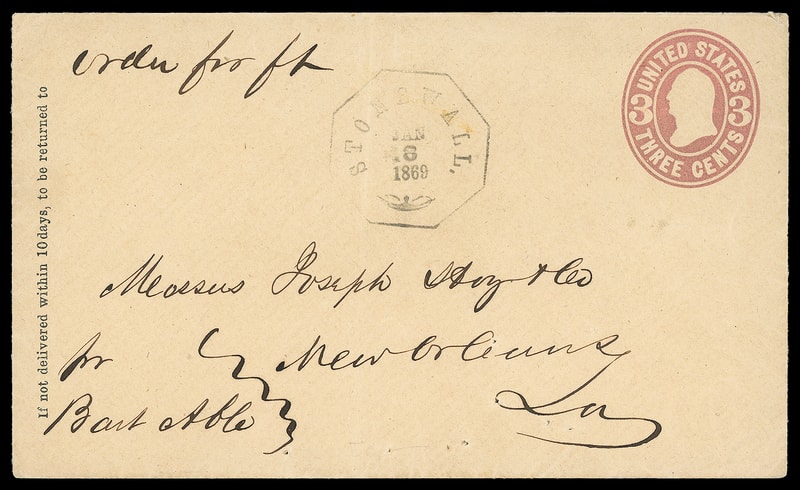 order for ft
UNITED STATES
3 3
THREE CENTS
STONEWALL.
JAN
18
1869
If not delivered within 10 days, to be returned to
Messers Joseph Hoy & Co
for New Orleans
Bart Able La